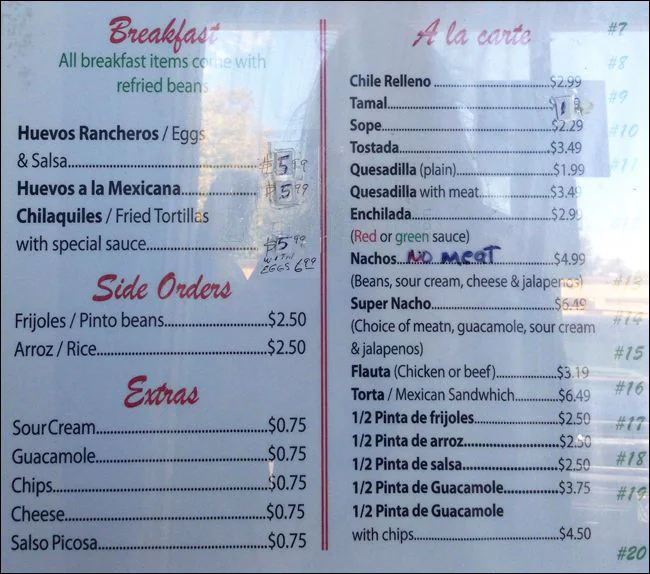 Breakfast
All breakfast items come with
refried beans
Huevos Rancheros / Eggs
& Salsa..........$5.99
Huevos a la Mexicana..........$5.99
Chilaquiles / Fried Tortillas
with special sauce..........$5.99
WITH
EGGS 6.99
Side Orders
Frijoles / Pinto beans..........$2.50
Arroz / Rice..........$2.50
Extras
Sour Cream..........$0.75
Guacamole..........$0.75
Chips..........$0.75
Cheese..........$0.75
Salso Picosa..........$0.75
A la carte
Chile Relleno..........$2.99
Tamal..........
Sope..........$2.29
Tostada..........$3.49
Quesadilla (plain)..........$1.99
Quesadilla with meat..........$3.49
Enchilada..........$2.99
(Red or green sauce)
Nachos..........NO MEAT $4.99
(Beans, sour cream, cheese & jalapenos)
Super Nacho..........$6.49
(Choice of meatn, guacamole, sour cream
& jalapenos)
Flauta (Chicken or beef)..........$3.19
Torta / Mexican Sandwhich..........$6.49
1/2 Pinta de frijoles..........$2.50
1/2 Pinta de arroz..........$2.50
1/2 Pinta de salsa..........$2.50
1/2 Pinta de Guacamole..........$3.75
1/2 Pinta de Guacamole
with chips..........$4.50
#7
#8
#9
#10
#11
#13
#14
#15
#16
#17
#18
#19
#20